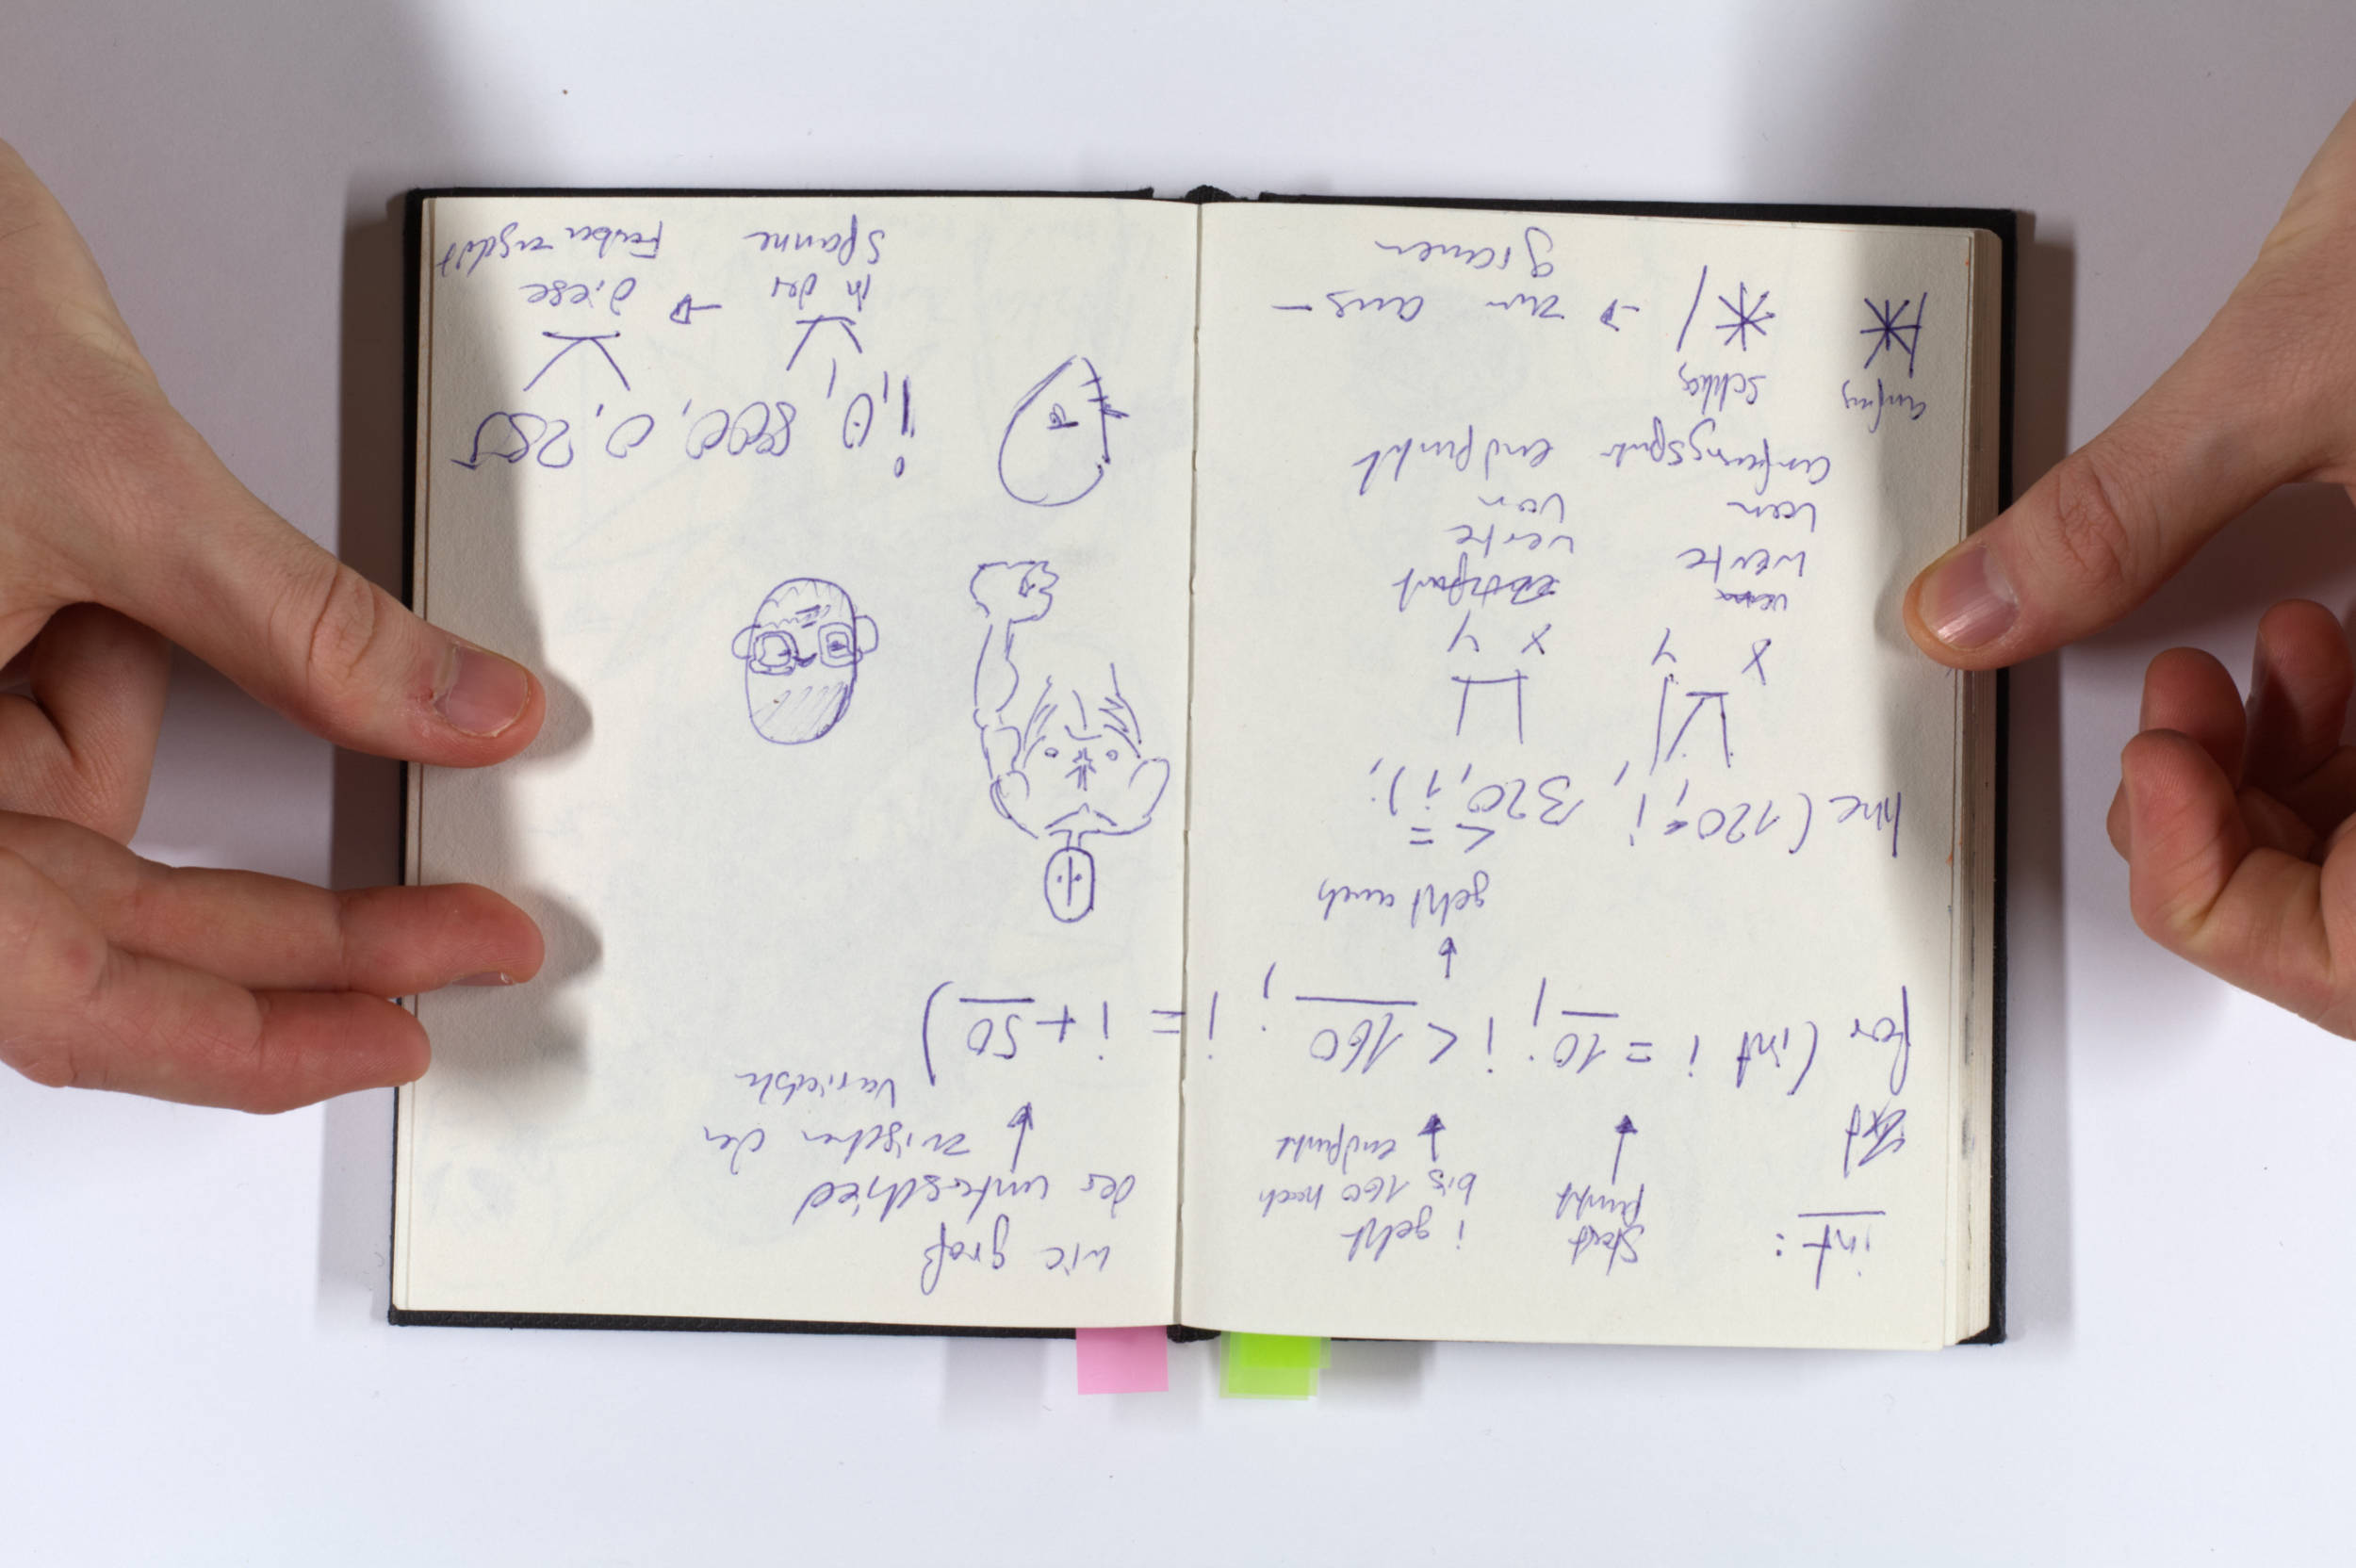 int:
Start
punkt
i geht
bis 160 nach
endpunkt
wie groß
der unterschied
zwischen der
Variable
for (int i = 10; i < 160; i = i + 50)
geht auch
<=
line (120, i, 320, i);
x y
x y
werte
von
werte
von
endpunkt
anfang
schlag
/* */ → zum aus-
grauen
i, 0, 800, 0, 255
in der
Spanne
→ diese
Farben